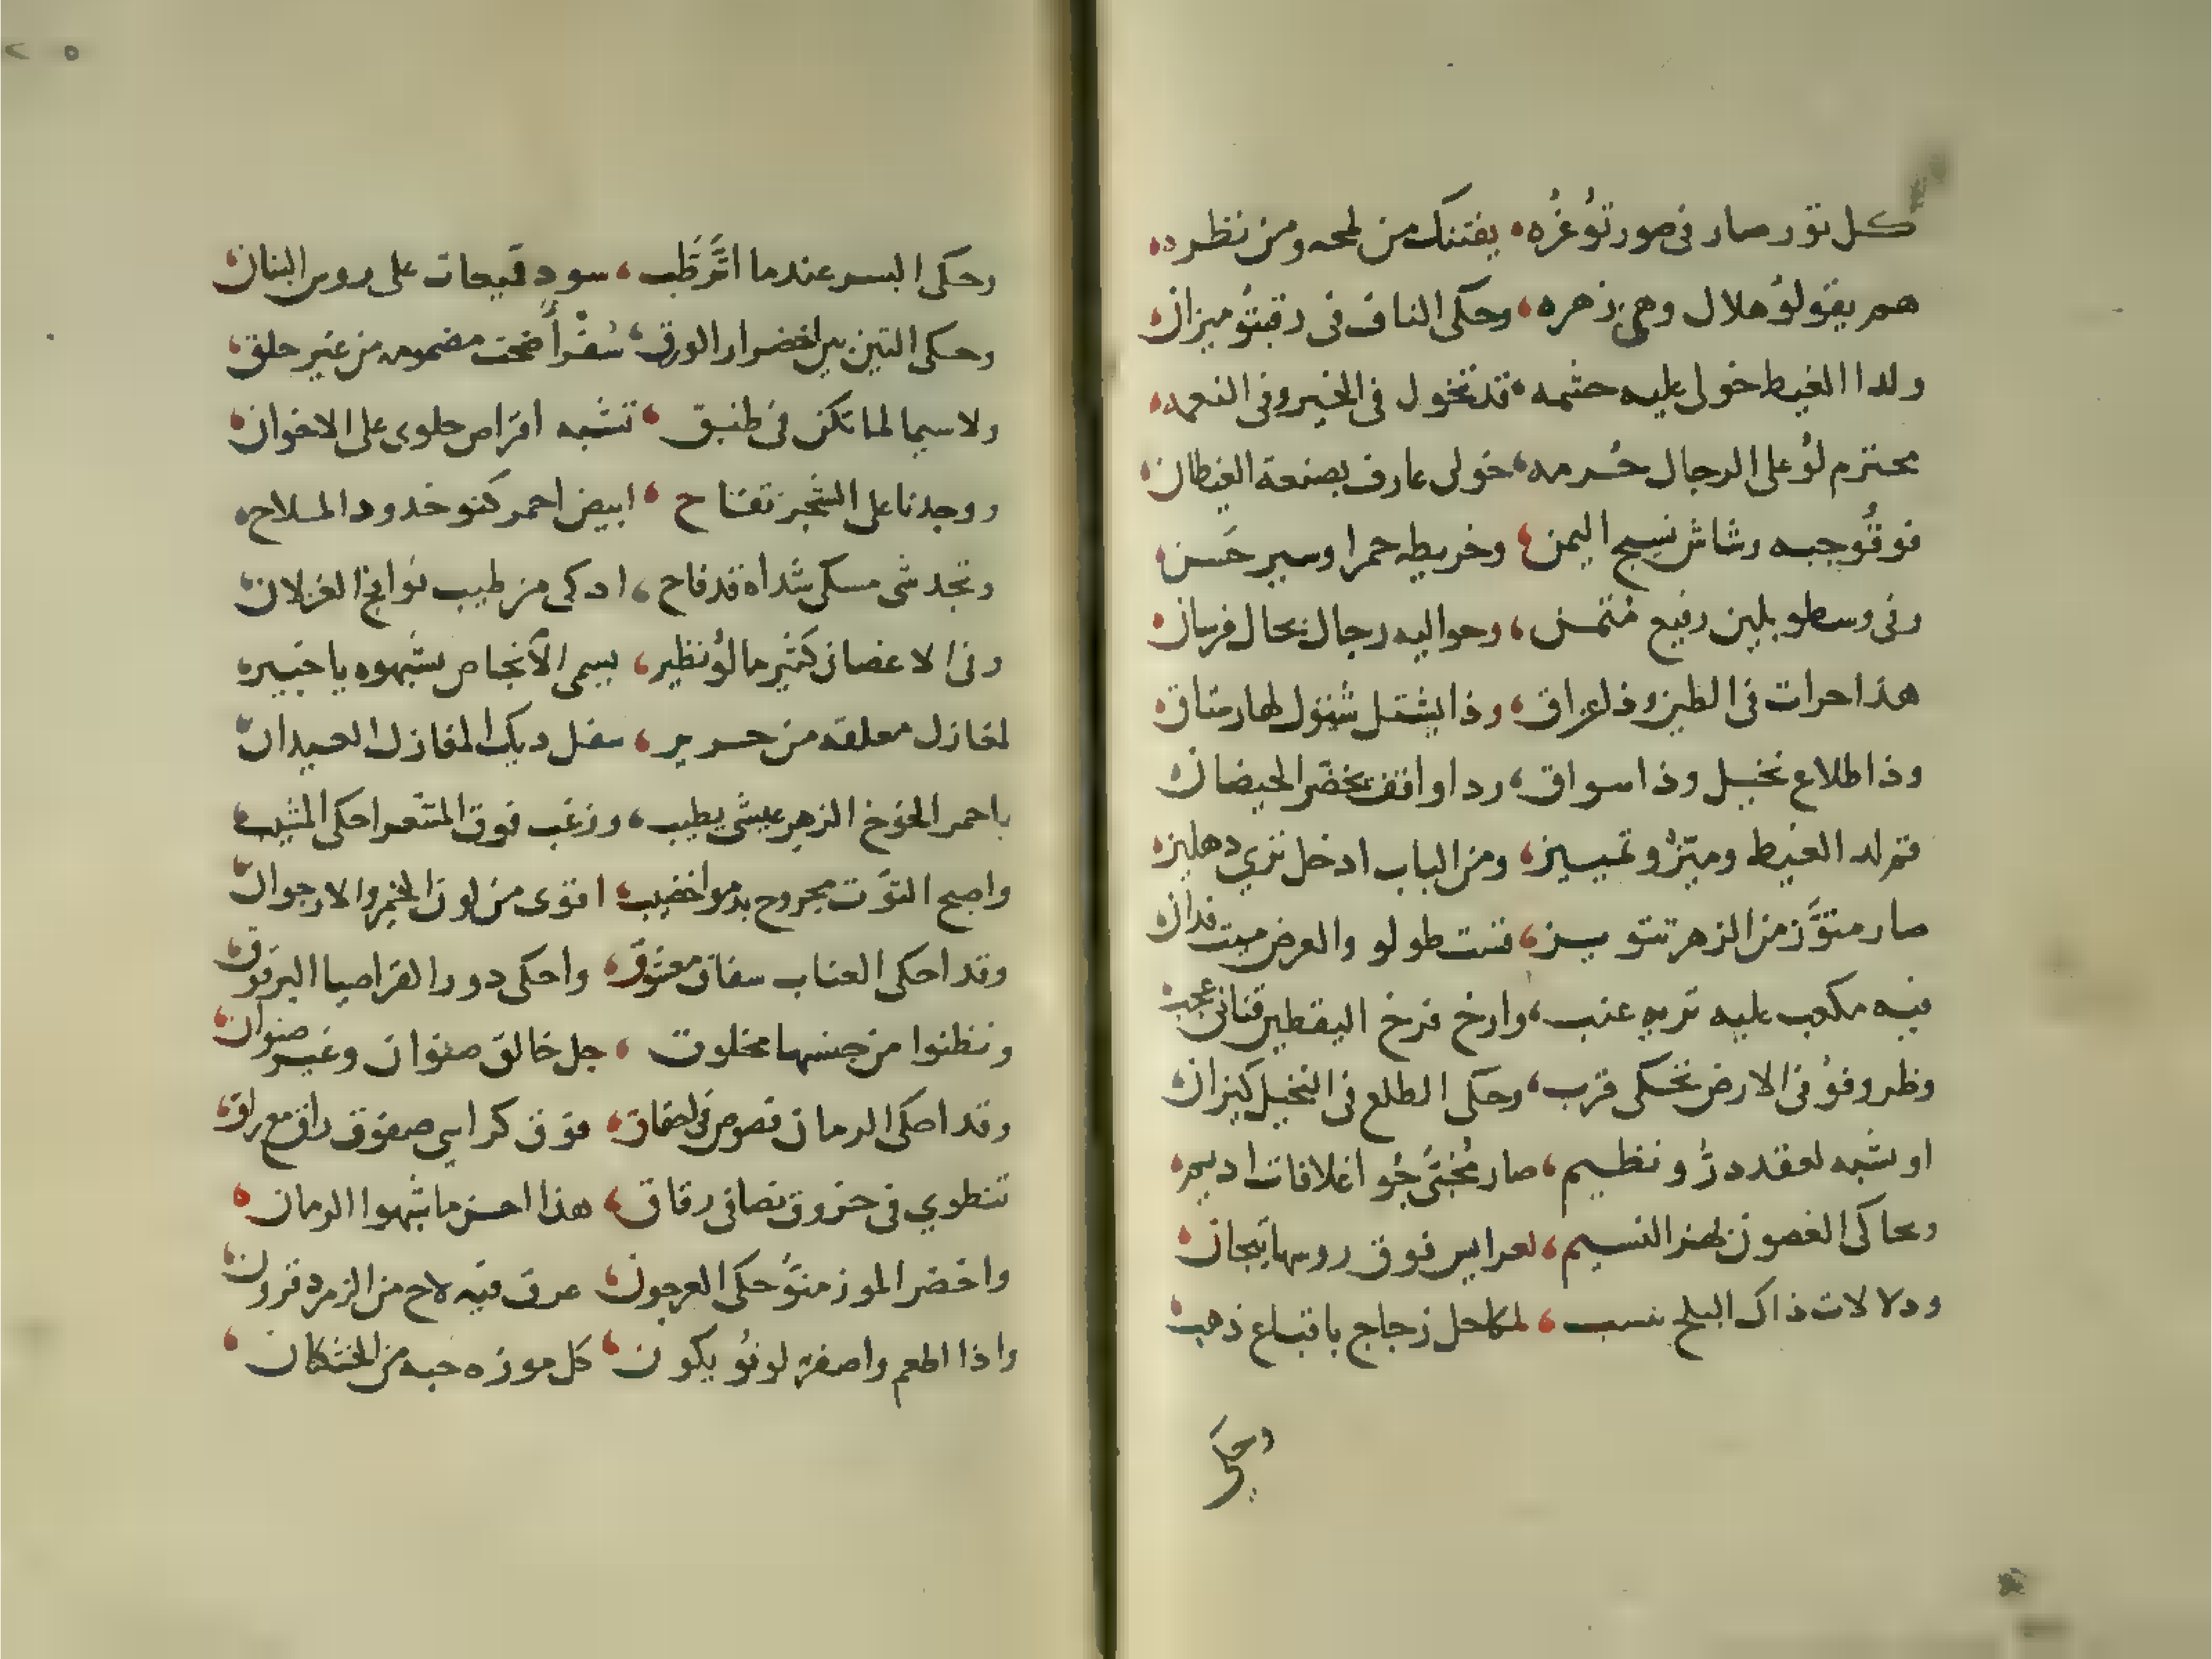 كل تور صار فى صورتُو غُرُه يفتنك من لمحه ومن نظره
هم يقولوُ هلال وهى زهره وحكى الناف فى رقبتُو ميزان
ولدا الغيط خولى عليه حشمه قد تخول فى الخير وفى النعمه
محتزم لوُ على الرجال حُرمه خولى عارف بصنعة الغيطان
فوقُو جبه وشاش نسيج اليمن وخريطه حمرا وسير حَسن
وفى وسطو بلين رفيع مُتمن وحواليه رجال بحال فرسان
هذا حرات فى الطين وذا عراق وذا يشتل شتول لها رستاق
وذا طلاع نخيل وذا سواق ودا واقف يخضّر الحيضان
قم لدا الغيط وميّزُو تمييز ومن الباب ادخل ترى دهليز
صار متوَّز من الزهر تتويز قست طولو والعرض ميت فدان
فيه مكعب عليه تربه عنب وارخ فرخ اليقطين قنانى عجب
وظروفوُ فى الارض تحكى قرب وحكى الطلع فى النخيل كيزان
او نشبه لعقد درُ ونظيم صار مُخبّى جُو اغلافات اديم
وحاكى الغصون لهز النسيم لعرايس فوق روسها تيجان
ودلالات ذاك البلح نسب لمكاحل زجاج باقباع ذهب
وحكى
٢٥
وحكى البسر عندما اتَّرطَّب سود قيحات على روس البنان
وحكى التين بين اخضرار الورق سُفراً ضحت مضمومه من غير حلق
ولا سيما لما تكن فى طبق تشبه اقراص حلوى على الاخوان
ووجدنا على الشجر تفاح ابيض احمر كنو خدود الملاح
وتجد شى مسكى شداه قد فاح ادكى من طيب نوافج الغزلان
وفى الاغصان كثير ما لوُ نظير يسمى الانجاص شبهوه يا خبير
لمغازل معلقه من حرير سفل ديك المغازل العيدان
يا حمر الخوخ الزهر عيشى يطيب وزغب فوق المشعر احكى المشيب
واصبح التوَّت مجروح بدمو اخضيب اقوى من لون الخمر والارجوان
وقد احكى العناب سفاق معشوَّق واحكى دور القراصيا البرقوق
ونظنوا من جنسها مخلوق جل خالق صنوان وغير صنوان
وقد احكى الرمان فصوص فى احقاق فوق كراسى صفوق راق مع راق
تنطوي فى خروق نصافى رقاق هذا احسن ما شبهوا الرمان
واخضر الموز منوُّ حكى العرجون عرق فيه لاح من الزمرد قرون
واذا اطعم واصفر لونوُ يكون كل موزه حبه من الخشكان